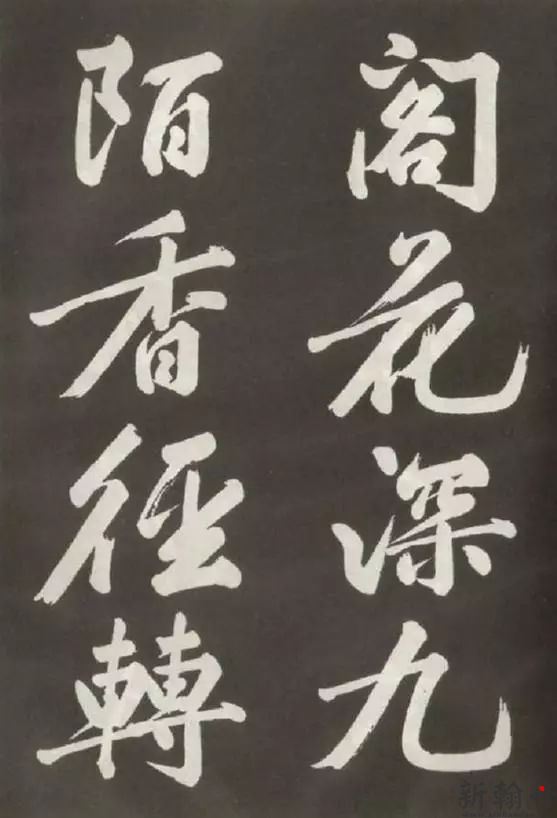 阁花深九
陌香徑轉
新翰